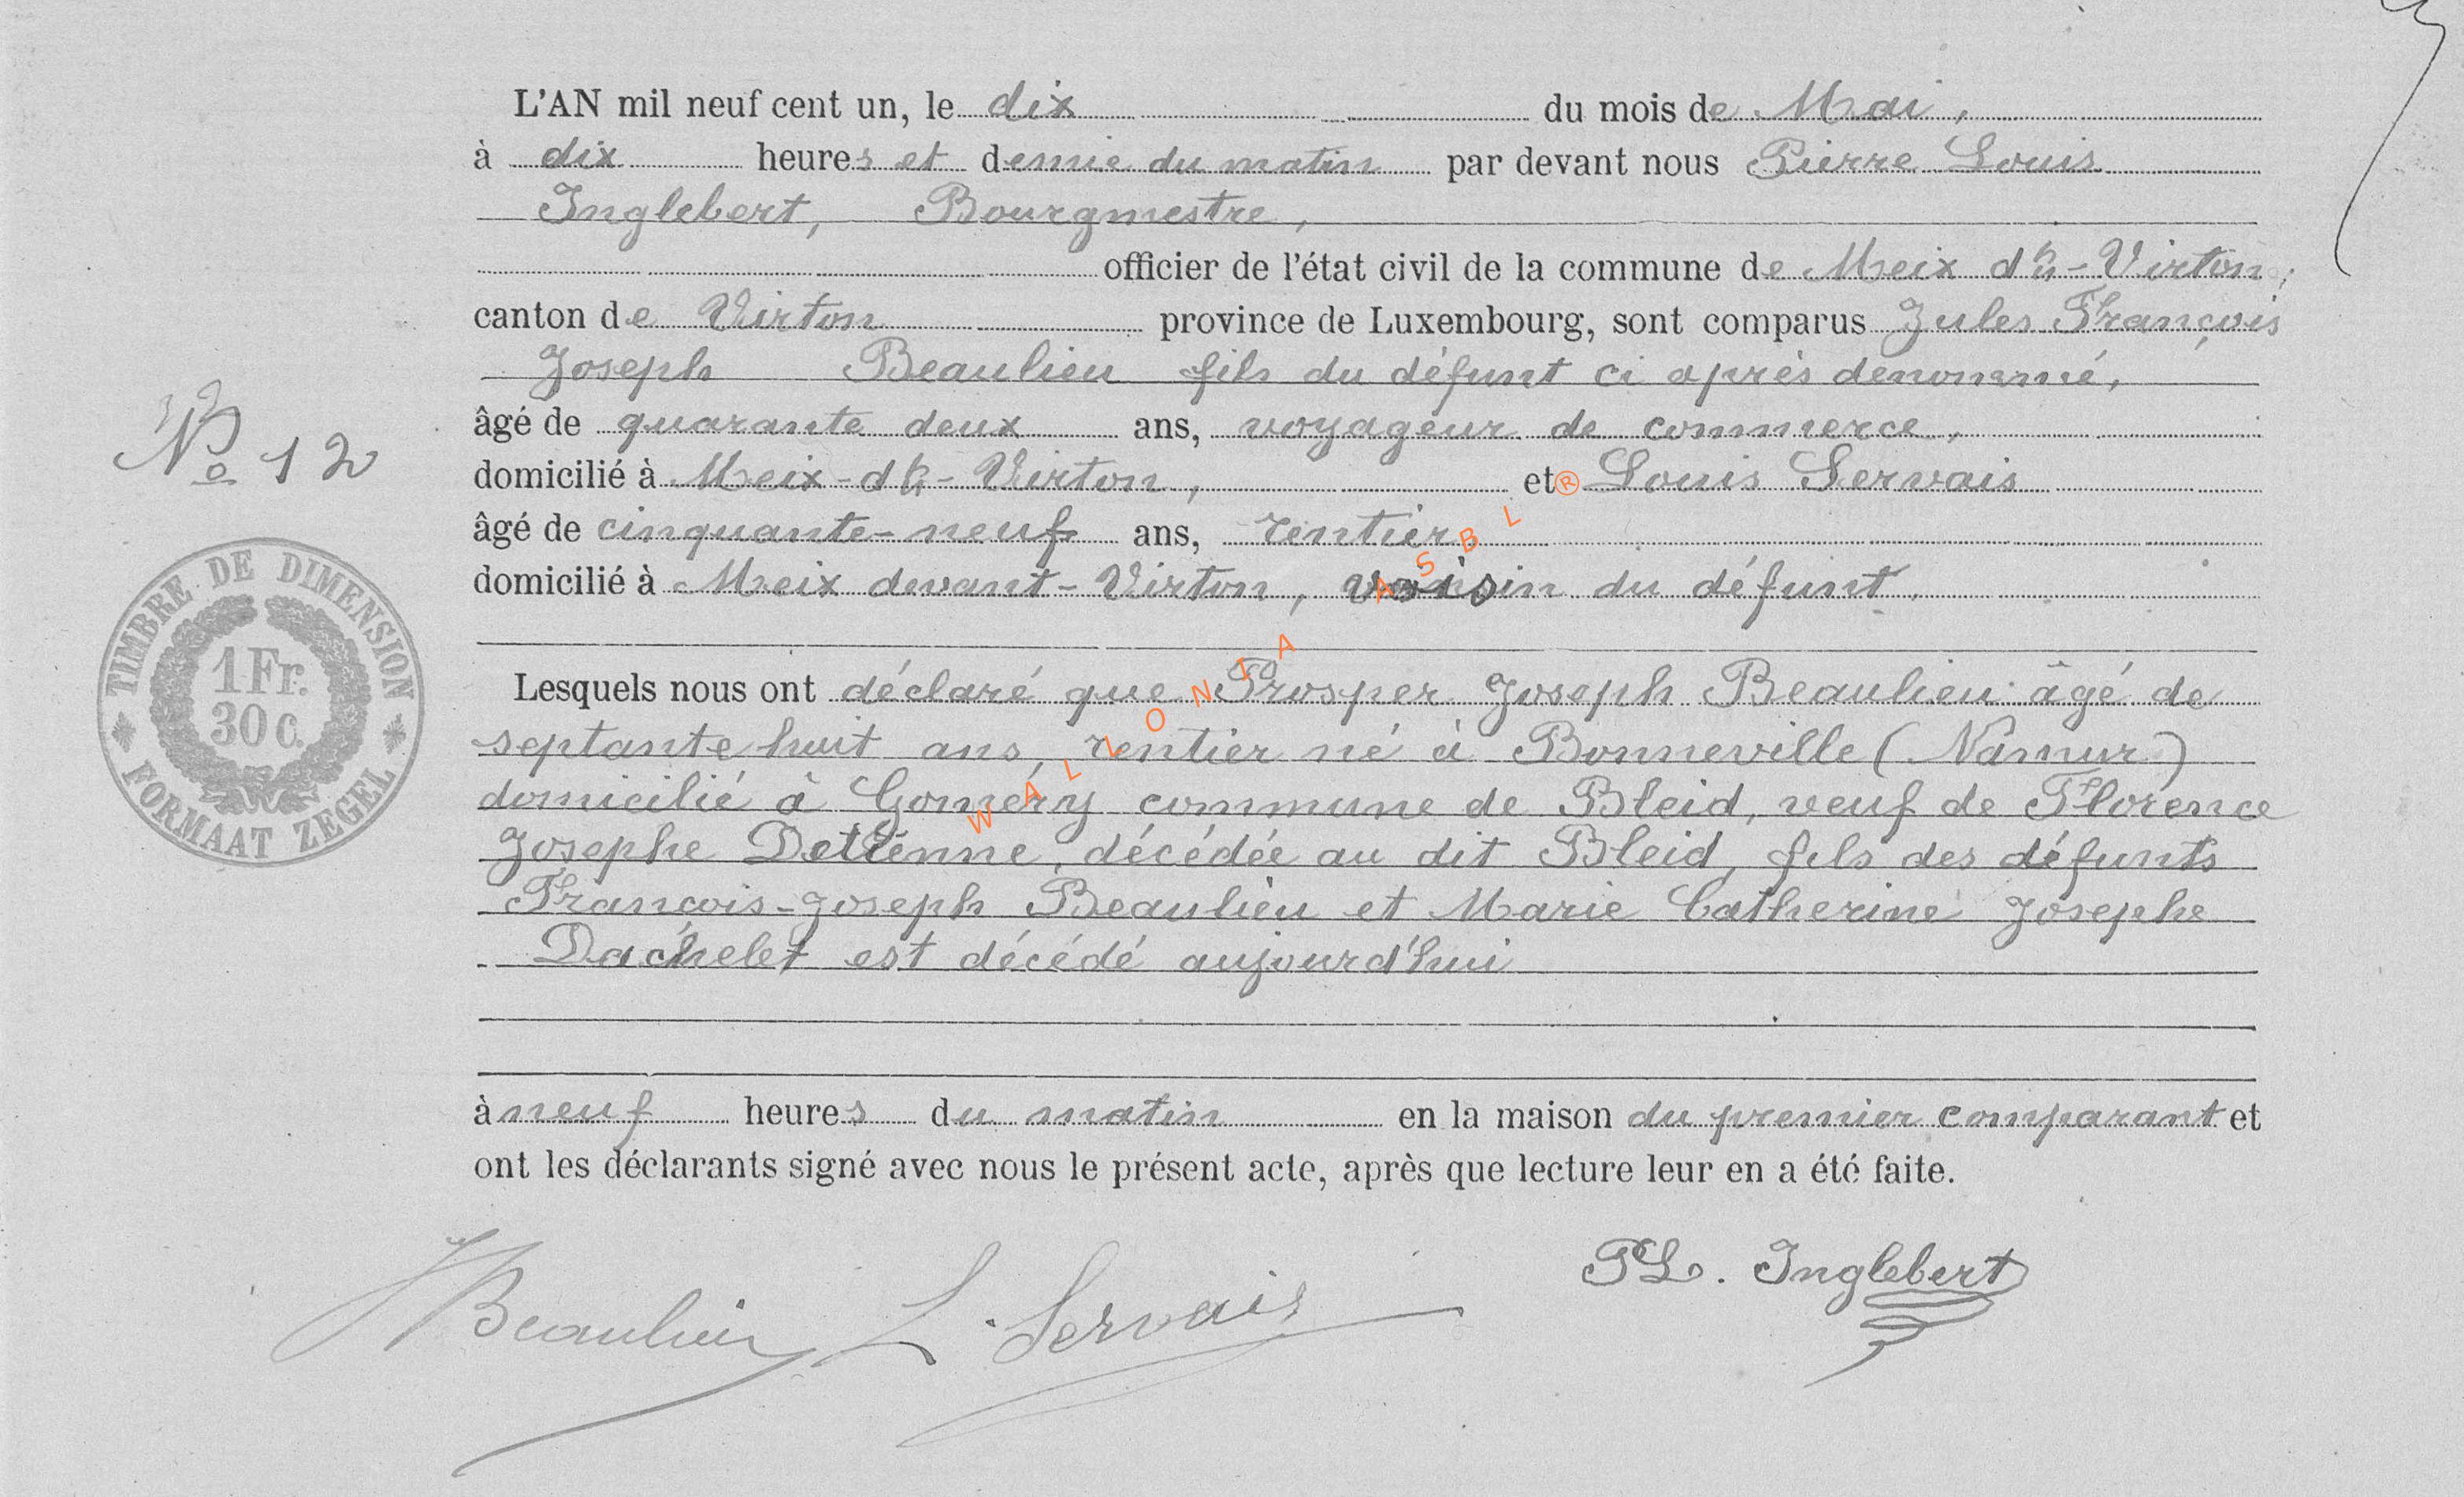 L'AN mil neuf cent un, le dix du mois de Mai,
à dix heures et demie du matin par devant nous Pierre Louis
Inglebert, Bourgmestre,
officier de l'état civil de la commune de Meix dt-Virton,
canton de Virton province de Luxembourg, sont comparus Jules François
Joseph Beaulieu fils du défunt ci après dénommé,
âgé de quarante deux ans, voyageur de commerce,
domicilié à Meix-dt-Virton, et Louis Servais
âgé de cinquante-neuf ans, rentier
domicilié à Meix devant-Virton, voisin du défunt.
Lesquels nous ont déclaré que Prosper Joseph Beaulieu âgé de
septante huit ans, rentier né à Bonneville (Namur)
domicilié à Gomery commune de Bleid, veuf de Florence
Josephe Detienne, décédée au dit Bleid, fils des défunts
François-Joseph Beaulieu et Marie Catherine Josephe
Dachelet est décédé aujourd'hui
à neuf heures du matin en la maison du premier comparant et
ont les déclarants signé avec nous le présent acte, après que lecture leur en a été faite.
JBeaulieu L. Servais PL. Inglebert
No 12
TIMBRE DE DIMENSION
1 Fr.
30 C.
FORMAAT ZEGEL
WALLONIA ASBL ®